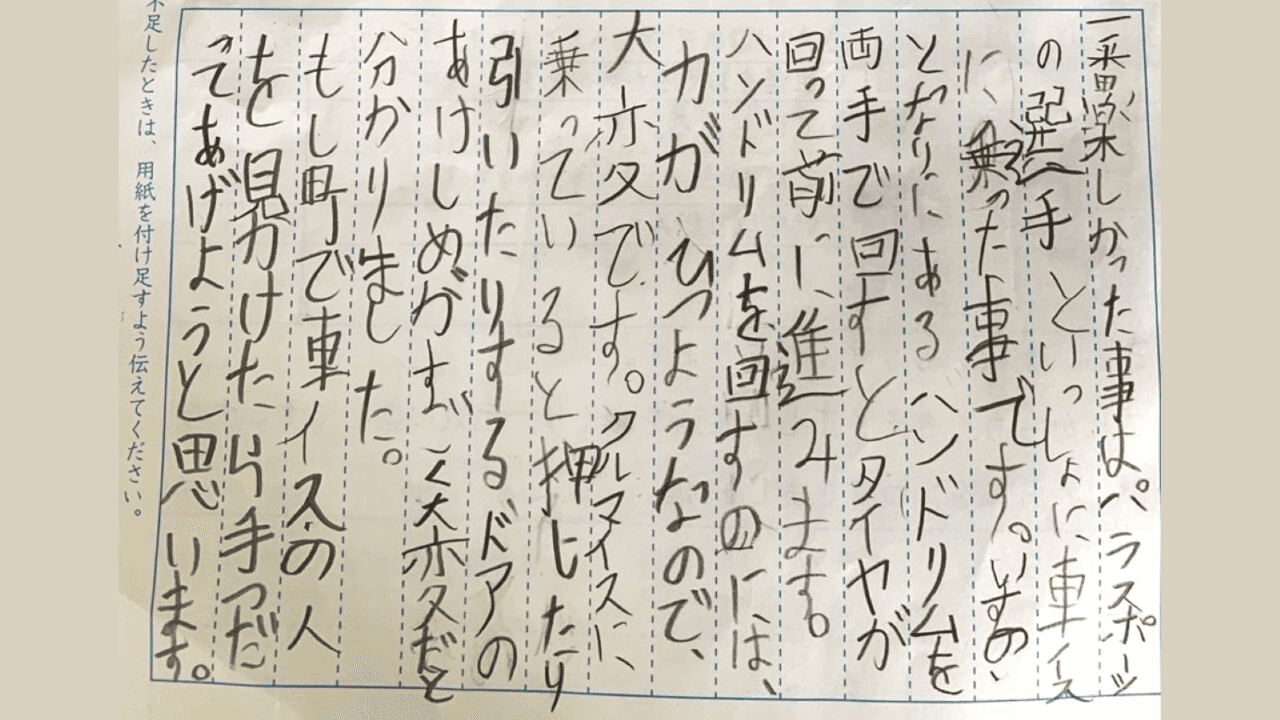 一番楽しかった事はパラスポーツ
の選手といっしょに車イス
に乗った事です。いすの
となりにあるハンドリムを
両手で回すとタイヤが
回って前に進みます。
ハンドリムを回すのには、
力がひつようなので、
大変です。クルマイスに
乗っていると押したり
引いたりするドアの
あけしめがすごく大変だと
分かりました。
もし町で車イスの人
を見かけたら手つだ
ってあげようと思います。
不足したときは、用紙を付け足すよう伝えてください。